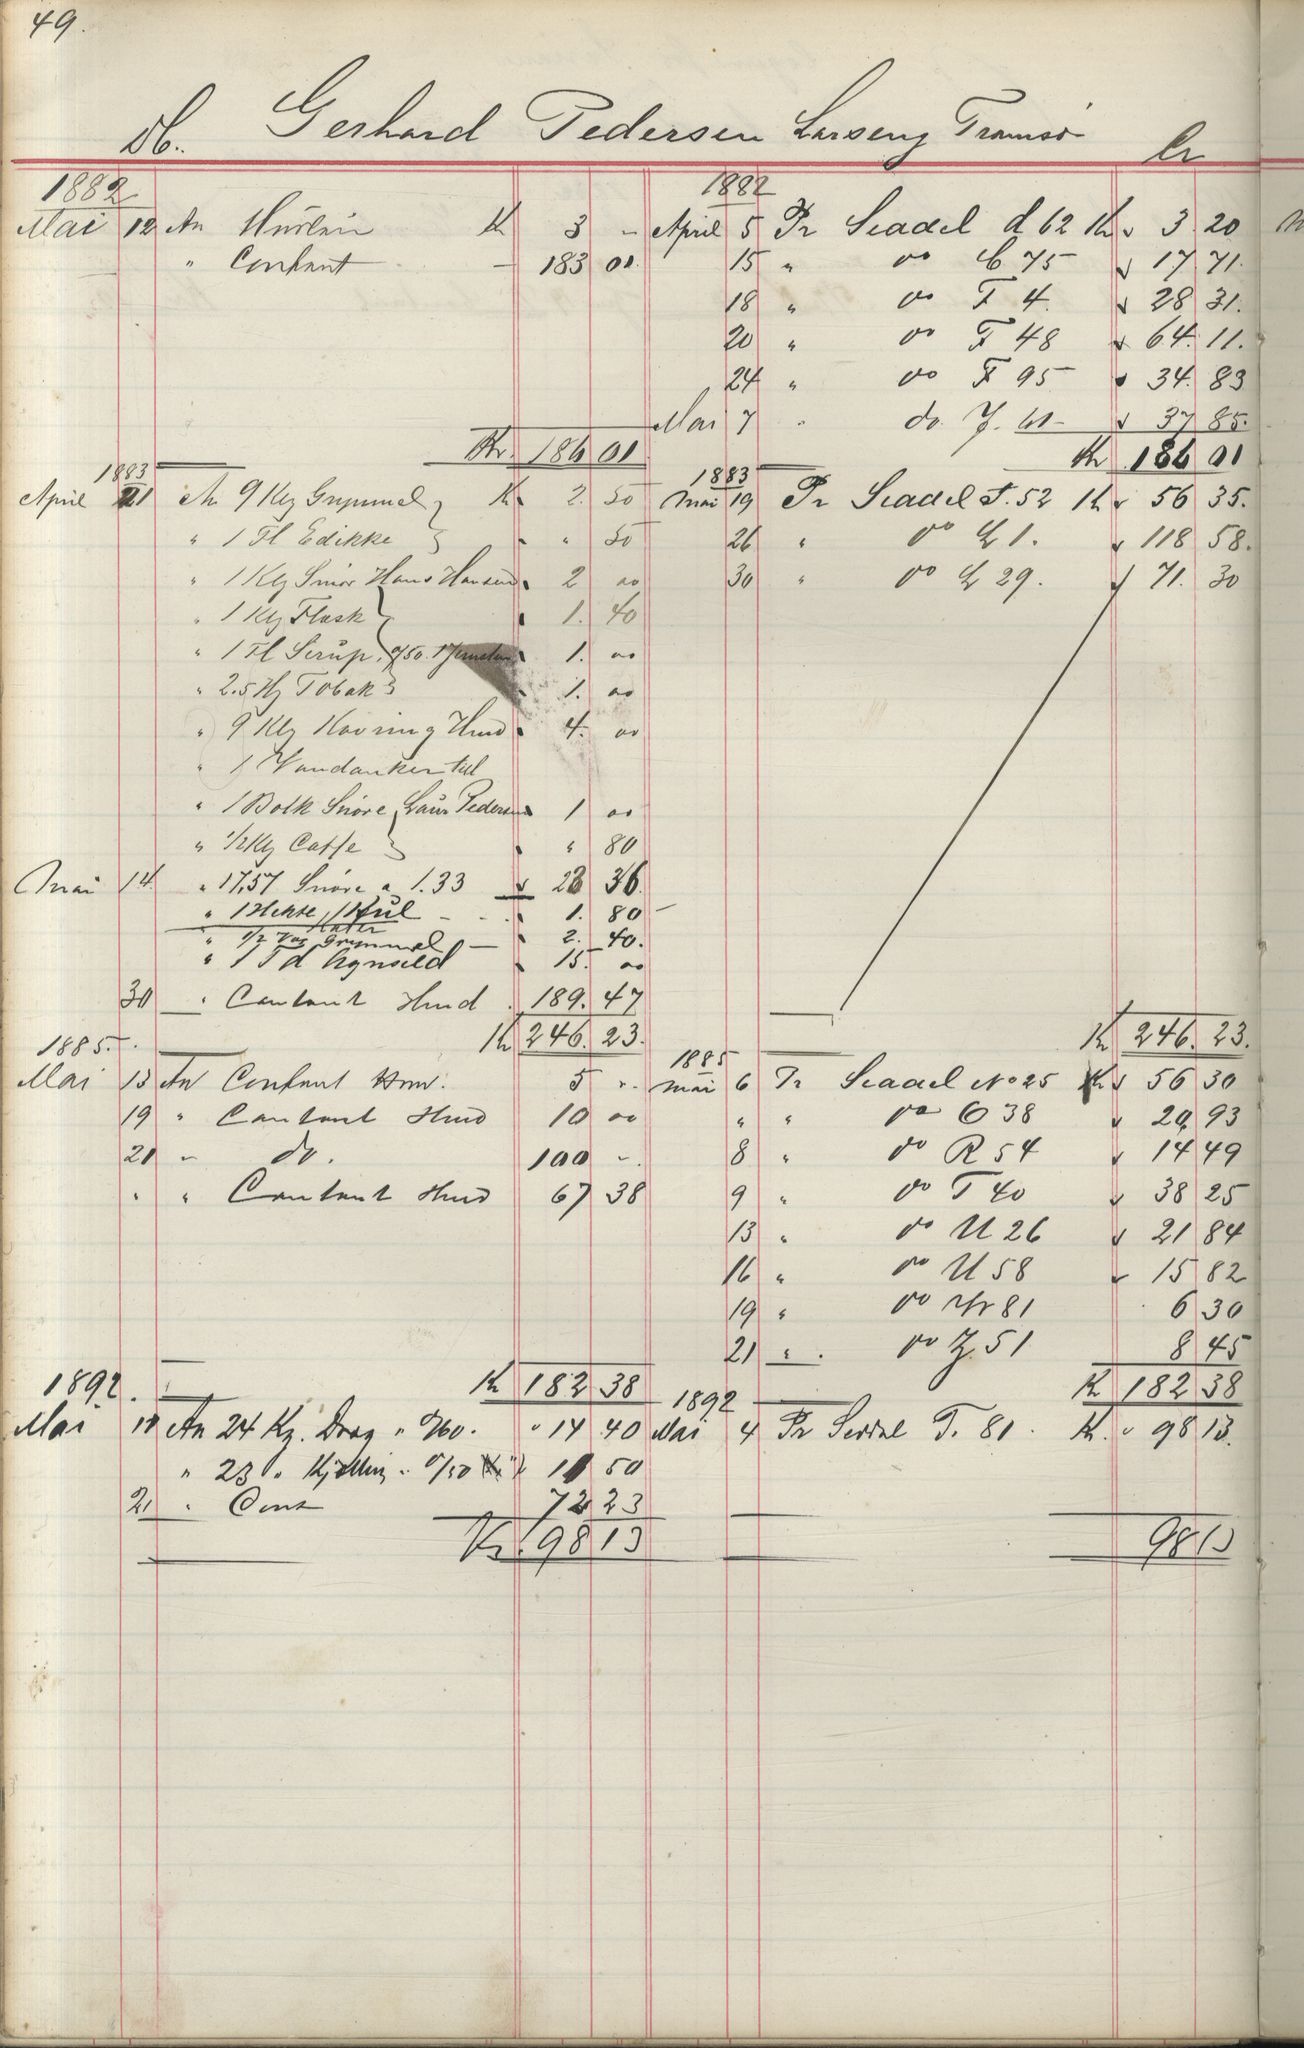 49.
Db. Gerhard Pedersen Larseng Tromsø Cr
1882
Mai 12 An Husleie Kr 3 -
" Contant - 183 01.
Kr. 186 01
1883
April 21 An 9 Klg Grynmel Kr 2. 50
" 1 Fl Edikke " 50
" 1 Klg Smör Hans Hansen 2 00
" 1 Klg Flæsk 1. 40
" 1 Fl Sirup. 1. 00
" 2.5 Hg Tobak 1. 00
" 9 Klg Kavring Hmd 4. 00
" 1 Vandanker till
" 1 Bolk Snöre Laur Pedersen 1 00
" 1/2 Klg Caffe " 80
Mai 14 " 17,57 Snöre a 1.33 23 36.
" 1 Hekte, 1 Kul 1. 80 -
" 1/2 Vog Grynmel - 2. 40.
" 1 Td Agnsild 15. 00
30 " Contant Hmd 189. 47
Kr 246. 23.
1885.
Mai 13 An Contant Hmd. 5 ".
19 " Contant Hmd 10 00
21 " do. 100 ".
" " Contant Hmd 67 38
Kr 182 38
1892.
Mai 10 An 24 Kg. Drag " 0/60. " 14 40
" 23 " Kjølling " 0/50 11 50
21 " Cont 72 23
Kr. 98 13
1882
April 5 Pr Seddel d 62 Kr 3. 20
15 " do C 75 17 71.
18 " do F 4. 28 31.
20 " do F 48 64. 11.
24 " do F 95 34. 83
Mai 7 " do. J. 61 - 37 85.
Kr 186 01
1883
Mai 19 Pr Seddel F. 52 Kr 56 35.
26 " do L 1. 118 58.
30 " do L 29. 71. 30
Kr 246. 23.
1885
Mai 6 Pr Seddel No 25 Kr 56 30
" " do O 38 20 93
8 " do R 54 14 49
9 " do T 40 38 25
13 " do U 26 21 84
16 " do U 58 15 82
19 " do 81 6 30
21 " do Z. 51 8 45
Kr 182 38
1892
Mai 4 Pr Seddel T. 81. Kr. " 98 13.
98 13